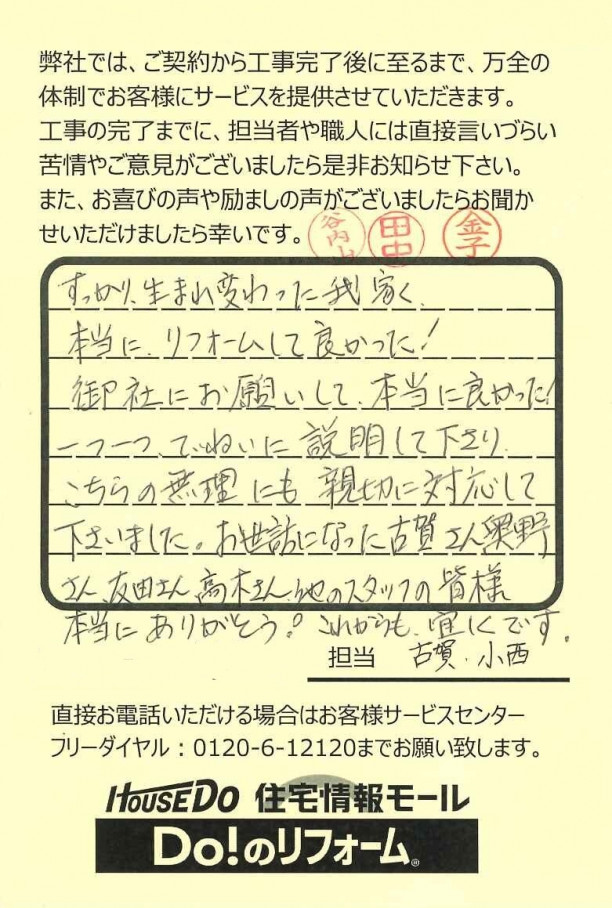 弊社では、ご契約から工事完了後に至るまで、万全の
体制でお客様にサービスを提供させていただきます。
工事の完了までに、担当者や職人には直接言いづらい
苦情やご意見がございましたら是非お知らせ下さい。
また、お喜びの声や励ましの声がございましたらお聞か
せいただけましたら幸いです。
谷内山 田中 金子
すっかり、生まれ変わった我家く、
本当に、リフォームして良かった!
御社にお願いして、本当に良かった!
一つ一つ、ていねいに説明して下さり
こちらの無理にも親切に対応して
下さいました。お世話になった古賀さん奥野
さん、友田さん、高木さん、他のスタッフの皆様
本当にありがとう。これからも、宜しくです。
担当 古賀・小西
直接お電話いただける場合はお客様サービスセンター
フリーダイヤル:0120-6-12120までお願い致します。
HOUSEDO 住宅情報モール
Do!のリフォーム®